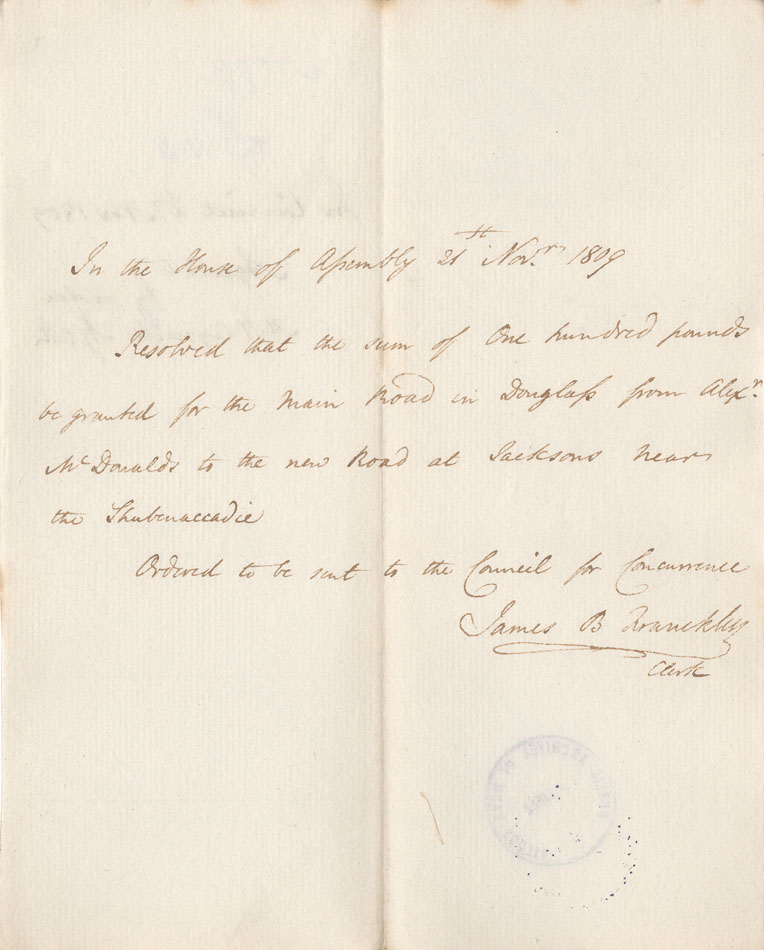 In the House of Assembly 21st Novr. 1809
Resolved that the sum of One hundred pounds
be granted for the Main Road in Douglass from Alexr.
McDonalds to the new Road at Jacksons near
the Shubenaccadie
Ordered to be sent to the Council for Concurrence
James B Francklin
Clerk